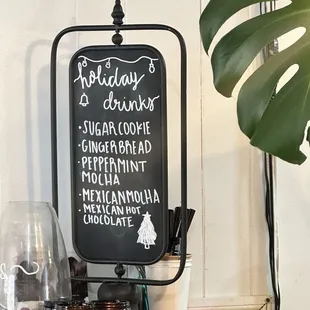 holiday
drinks
· SUGAR COOKIE
· GINGERBREAD
· PEPPERMINT
MOCHA
· MEXICAN MOCHA
· MEXICAN HOT
CHOCOLATE